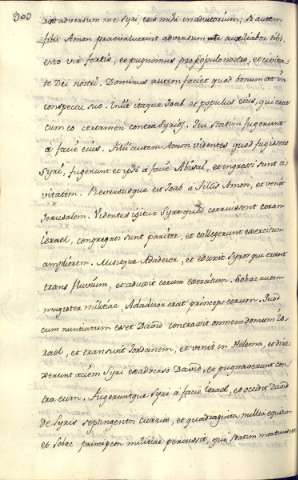 300
adversum me Syri eris mihi in adiutorium; si autem
filii Amon praevaluerint adversum te auxiliabor tibi.
esto vir fortis, et pugnemus pro populo nostro, et civita
te Dei nostri. Dominus autem faciet quod bonum est in
conspectu suo. Iniit itaque Ioab et populus eius, qui erat
cum eo certamen contra Syros. Qui statim fugerunt
à facie eius. Filii autem Amon videntes quod fugissent
Syri, fugerunt et ipsi à facie Abisai, et ingressi sunt ci
vitatem. Reversusque est Ioab à filiis Amon, et venit
Ierusalem. Videntes igitur Syri quod corruissent coram
Israel, congregati sunt pariter, et
Misitque Adadezer, et eduxit Syros qui erant
trans fluvium, et adduxit eorum exercitum. Sobac autem
magister militiae Adadezer erat princeps eorum. Quod
cum nuntiatum esset David contraxit omnem Is
rael, et transivit Iordanem, et venit in Helema, et dire
xerunt aciem Syri ex adverso David, et pugnaverunt con
tra eum. Fugeruntque Syri à facie Israel, et occidit David
de Syris septingentos currus, et quadraginta millia equitum
et Sobac principem militiae percussit, qui statim mortuus est